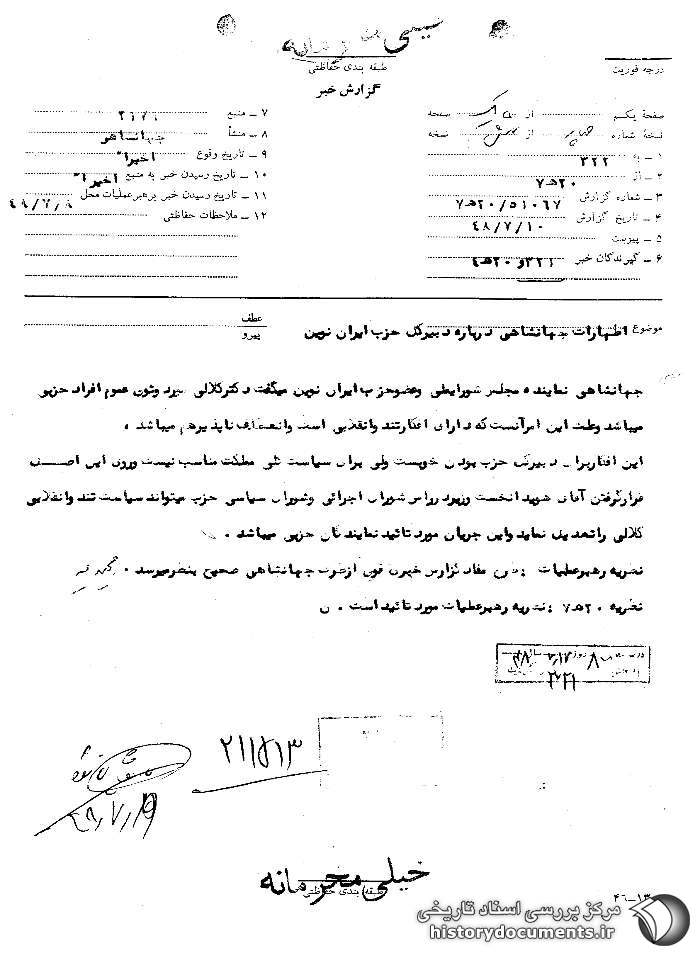 خیلی محرمانه
طبقه بندی حفاظتی
درجه فوریت
گزارش خبر
صفحه یکم از یک صفحه
نسخه شماره چهار از شش نسخه
۱ - به ۳۲۲
۲ - از ۲۰ﻫ۷
۳ - شماره گزارش ۲۰/۵۱۰۶۷ﻫ۷
۴ - تاریخ گزارش ۴۸/۷/۱۰
۵ - پیوست
۶ - گیرندگان خبر ۳۲۱ و ۲۰ﻫ۴
۷ - منبع ۲۱۷۱
۸ - منشأ جهانشاهی
۹ - تاریخ وقوع اخیراً
۱۰ - تاریخ رسیدن خبر به منبع اخیراً
۱۱ - تاریخ رسیدن خبر برهبرعملیات محل ۴۸/۷/۸
۱۲ - ملاحظات حفاظتی
موضوع اظهارات جهانشاهی درباره دبیرکل حزب ایران نوین
عطف
پیرو
جهانشاهی نماینده مجلس شورایملی وعضوحزب ایران نوین میگفت دکترکلالی مورد وثوق عموم افراد حزبی
میباشد وعلت این امرآنست که دارای افکارتند وانقلابی است وانعطاف ناپذیرهم میباشد .
این افکاربرای دبیرکل حزب بودن خوبست ولی برای سیاست کلی مملکت مناسب نیست وروی این اصل
قرارگرفتن آقای هویدا نخست وزیردرراس شورای اجرائی وشورای سیاسی حزب میتواند سیاست تند وانقلابی
کلالی راتعدیل نماید واین جریان مورد تائید نمایندگان حزبی میباشد .
نظریه رهبرعملیات : مفاد گزارش خبری فوق ازطرف جهانشاهی صحیح بنظرمیرسد .
نظریه ۲۰ﻫ۷ : نظریه رهبرعملیات مورد تائید است . ن
۳۲۱
۲۱۱۵۱۳
خیلی محرمانه
طبقه بندی حفاظتی
۴۶-۱۳
مرکز بررسی اسناد تاریخی
historydocuments.ir